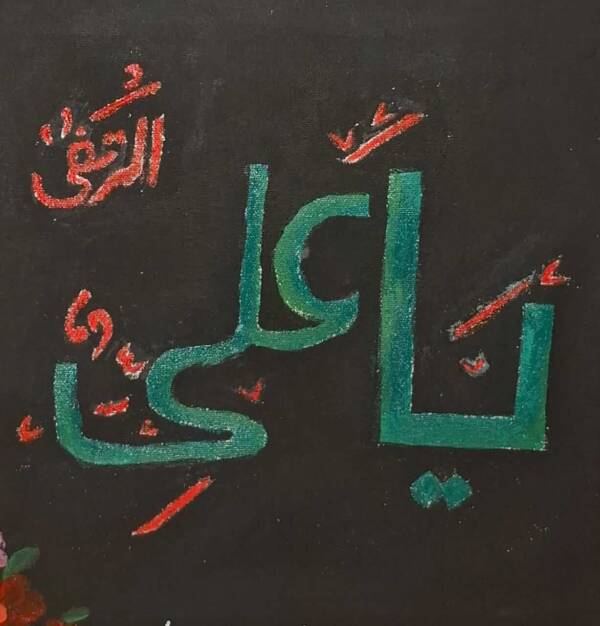 يا على
المرتضى